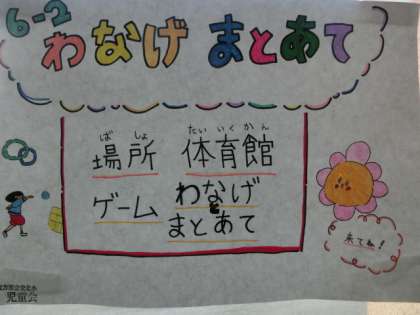 6-2
わなげ まとあて
ばしょ たいいくかん
場所 体育館
ゲーム わなげ
と
まとあて
来てね!
児童会